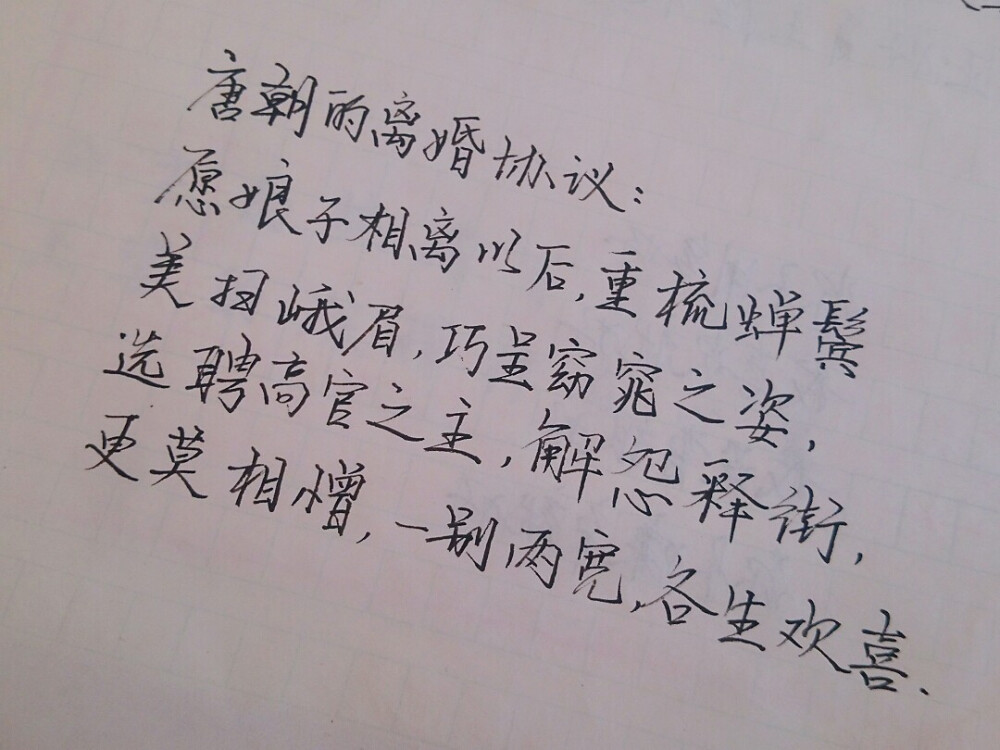 唐朝的离婚协议：
愿娘子相离以后，重梳蝉鬓
美扫峨眉，巧呈窈窕之姿，
选聘高官之主，解怨释街，
更莫相憎，一别两宽，各生欢喜.